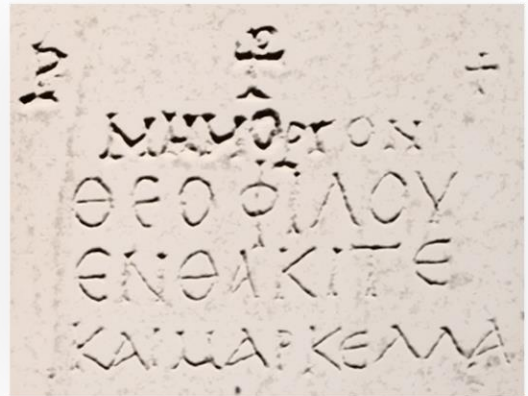 ΜΑΜΟΡΙΟΝ
ΘΕΟΦΙΛΟΥ
ΕΝΘΑΚΙΤΕ
ΚΑΙΜΑΡΚΕΛΛΑ